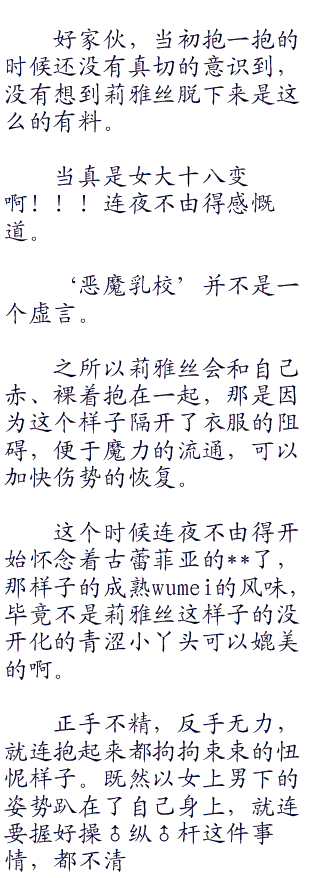 好家伙，当初抱一抱的
时候还没有真切的意识到，
没有想到莉雅丝脱下来是这
么的有料。
当真是女大十八变
啊！！！连夜不由得感慨
道。
‘恶魔乳校’并不是一
个虚言。
之所以莉雅丝会和自己
赤、裸着抱在一起，那是因
为这个样子隔开了衣服的阻
碍，便于魔力的流通，可以
加快伤势的恢复。
这个时候连夜不由得开
始怀念着古蕾菲亚的**了，
那样子的成熟wumei的风味，
毕竟不是莉雅丝这样子的没
开化的青涩小丫头可以媲美
的啊。
正手不精，反手无力，
就连抱起来都拘拘束束的忸
怩样子。既然以女上男下的
姿势趴在了自己身上，就连
要握好操♂纵♂杆这件事
情，都不清